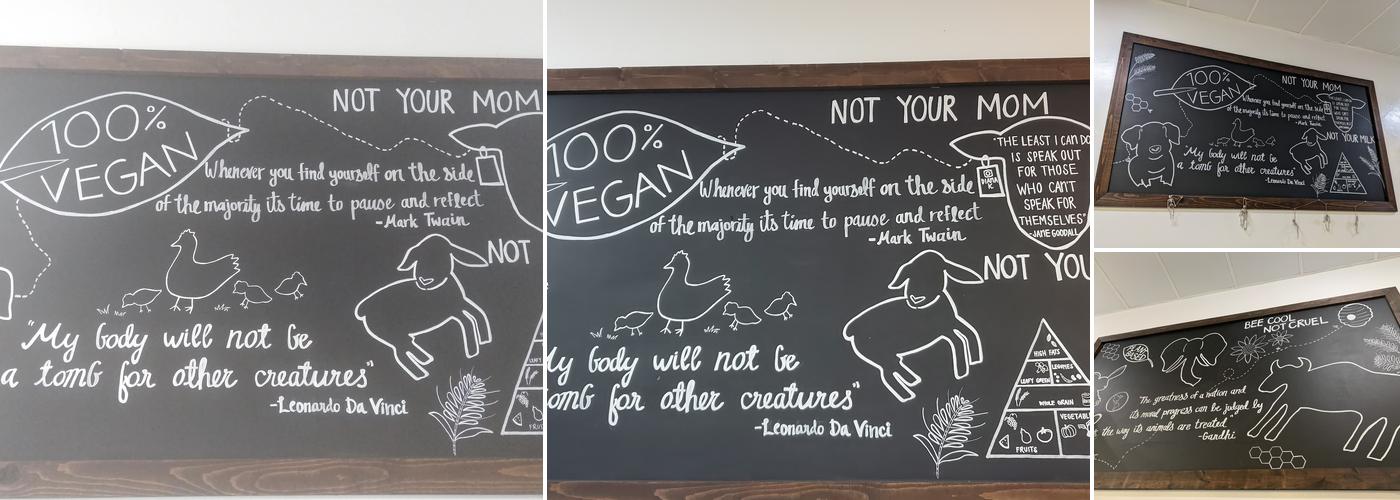 100%
VEGAN
NOT YOUR MOM
Whenever you find yourself on the side
of the majority its time to pause and reflect
-Mark Twain
NOT
"My body will not be
a tomb for other creatures"
-Leonardo Da Vinci
100%
VEGAN
NOT YOUR MOM
Whenever you find yourself on the side
of the majority its time to pause and reflect
-Mark Twain
"THE LEAST I CAN DO
IS SPEAK OUT
FOR THOSE
WHO CAN'T
SPEAK FOR
THEMSELVES"
-JANE GOODALL
NOT YOU
My body will not be
omb for other creatures"
-Leonardo Da Vinci
HIGH FATS
LEAFY GREEN
LEGUMES
WHOLE GRAIN
FRUITS
VEGETABL
100%
VEGAN
NOT YOUR MOM
Whenever you find yourself on the side
of the majority its time to pause and reflect
-Mark Twain
NOT YOUR MILK
"My body will not be
a tomb for other creatures"
-Leonardo Da Vinci
BEE COOL
NOT CRUEL
The greatness of a nation and
its moral progress can be judged by
the way its animals are treated"
-Gandhi